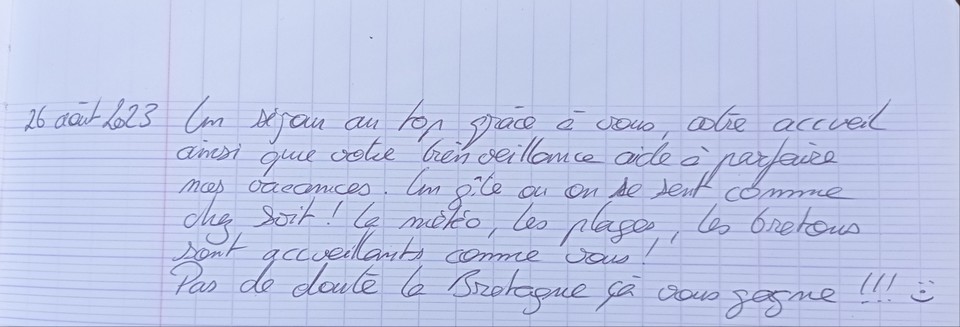 26 août 2023 Un séjour au top grâce à vous, votre accueil
ainsi que votre bienveillance aide à parfaire
nos vacances. Un gîte ou on se sent comme
chez soit ! La météo, les plages, les bretons
sont accueillants comme vous !
Pas de doute la Bretagne çà vous gagne !!! :)